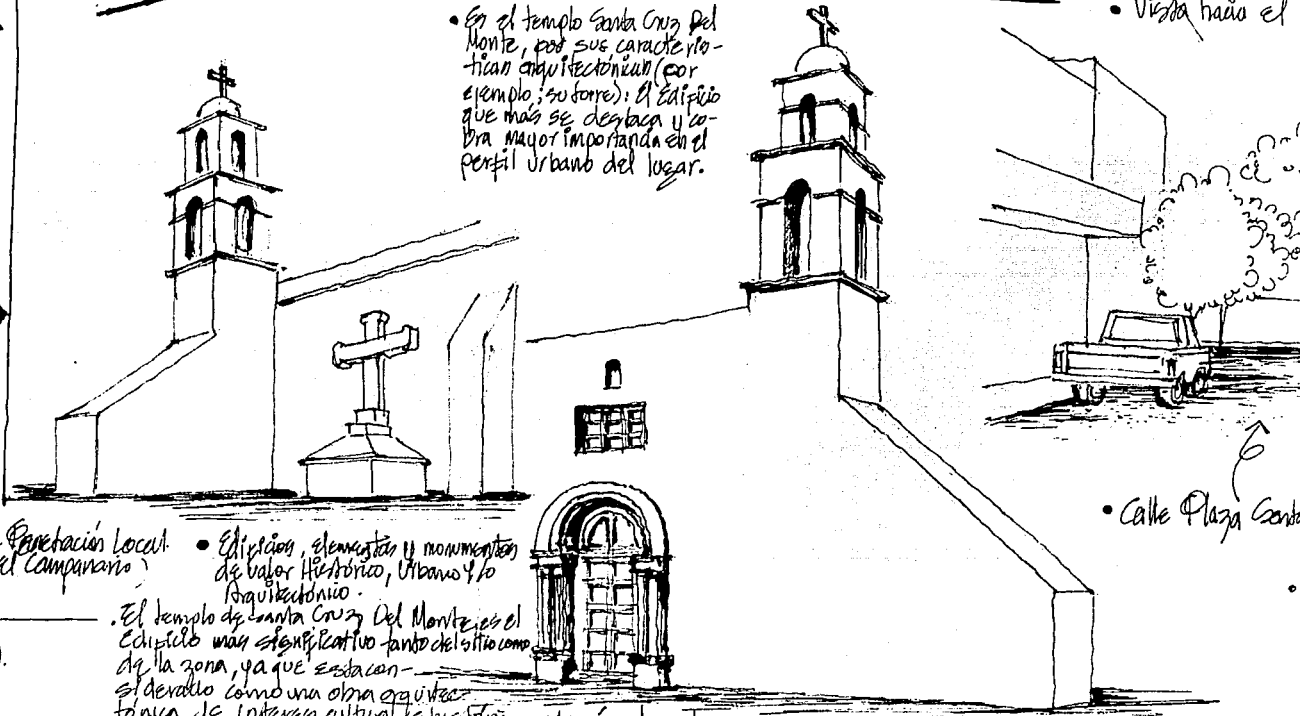 • Es el templo Santa Cruz Del
Monte, por sus caracterís-
ticas arquitectónicas (por
ejemplo; su torre): El Edificio
que más se destaca y co-
bra mayor importancia en el
perfil urbano del lugar.
• Vista hacia el
• Calle Plaza Santa
Penetración Local
el Campanario
• Edificios, elementos y monumentos
de valor Histórico, Urbano y/o
Arquitectónico.
. El templo de Santa Cruz Del Monte, es el
Edificio más significativo tanto del sitio como
de la zona, ya que esta con-
siderado como una obra arquitec-
tónica de interes cultural